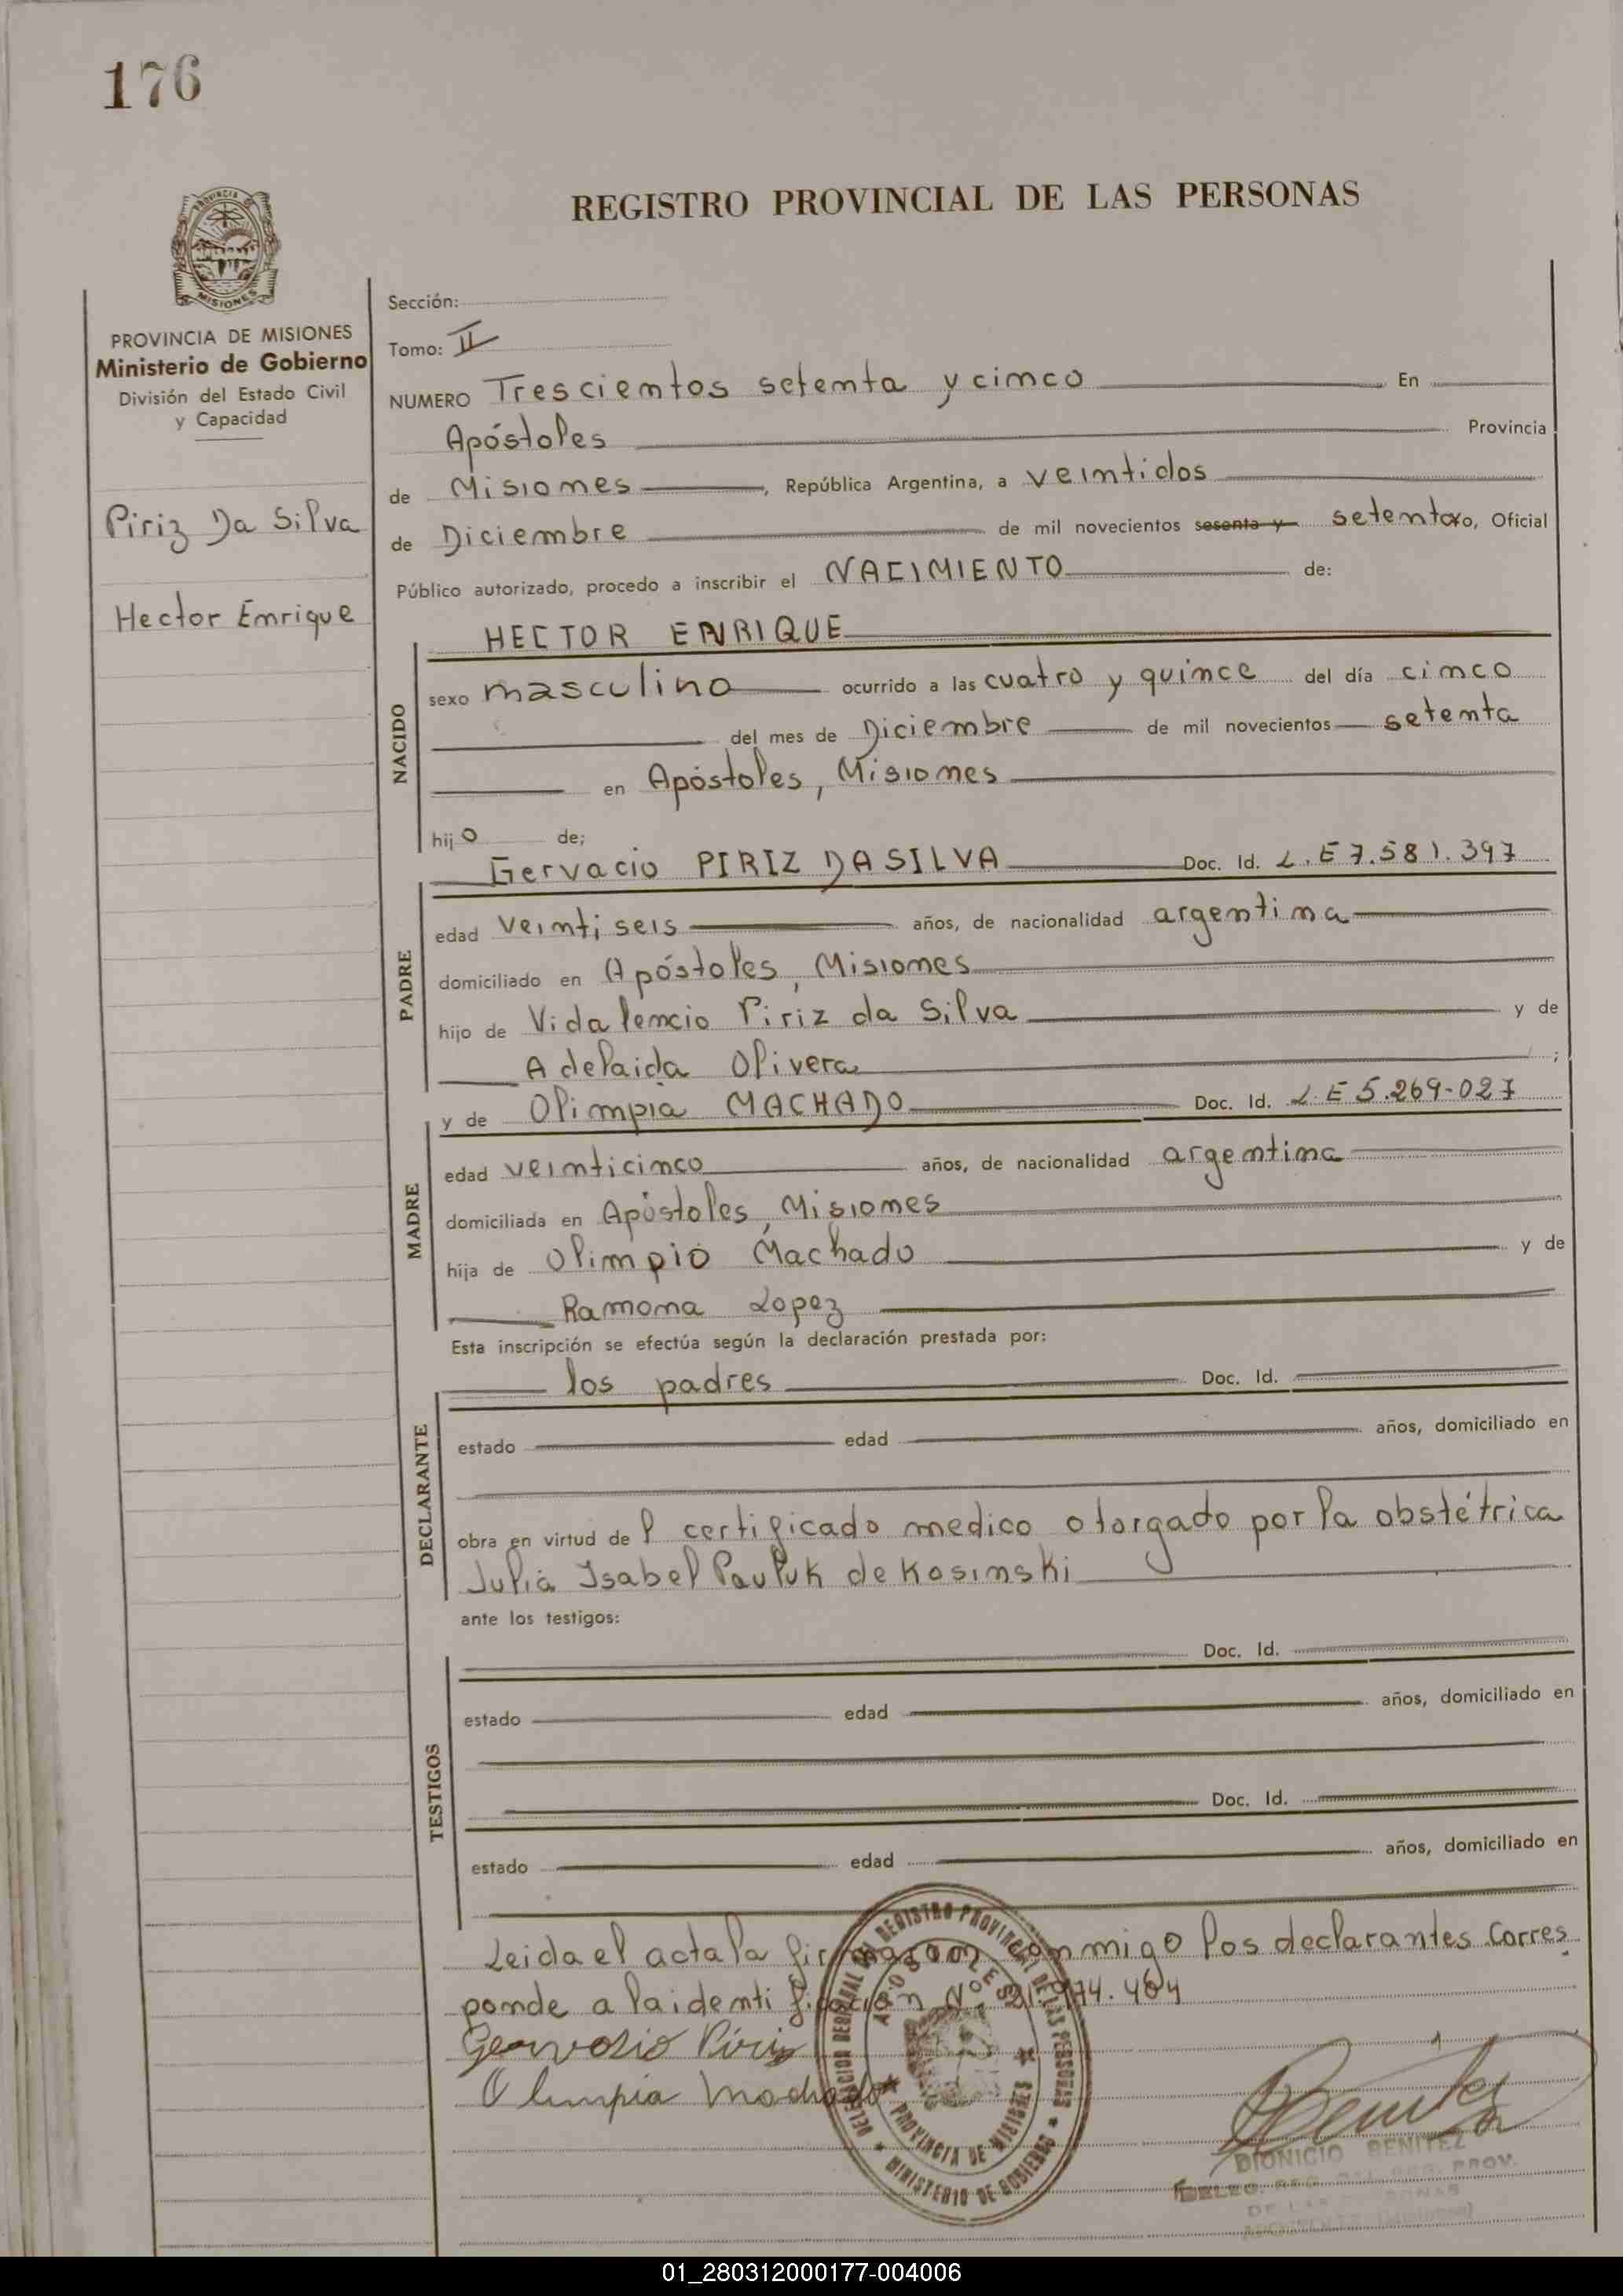 176
REGISTRO PROVINCIAL DE LAS PERSONAS
PROVINCIA DE MISIONES
Ministerio de Gobierno
División del Estado Civil
y Capacidad
Piriz Da Silva
Hector Enrique
Sección:
Tomo: II
NUMERO Trescientos setenta y cinco En
Apóstoles Provincia
de Misiones, República Argentina, a veintidos
de Diciembre de mil novecientos sesenta y setenta yo, Oficial
Público autorizado, procedo a inscribir el NACIMIENTO de:
NACIDO
HECTOR ENRIQUE
sexo masculino ocurrido a las cuatro y quince del día cinco
del mes de Diciembre de mil novecientos setenta
en Apóstoles, Misiones
hijo de;
PADRE
Gervacio PIRIZ DA SILVA Doc. Id. L.E 7.581.397
edad veintiseis años, de nacionalidad argentina
domiciliado en Apóstoles, Misiones
hijo de Vidalencio Piriz da Silva y de
Adelaida Olivera;
MADRE
y de Olimpia MACHADO Doc. Id. L.E 5.269.027
edad veinticinco años, de nacionalidad argentina
domiciliada en Apóstoles, Misiones
hija de Olimpio Machado y de
Ramona Lopez
Esta inscripción se efectúa según la declaración prestada por:
DECLARANTE
los padres Doc. Id.
estado edad años, domiciliado en
obra en virtud del certificado medico otorgado por la obstétrica
Julia Isabel Pauluk de Kosinski
ante los testigos:
TESTIGOS
Doc. Id.
estado edad años, domiciliado en
Doc. Id.
estado edad años, domiciliado en
Leida el acta la firmaron conmigo los declarantes. Corres
ponde a la identificación Nº 21.974.484
Gervasio Piris
Olimpia Machado
DELEGACION REGIONAL DEL REGISTRO PROVINCIAL DE LAS PERSONAS
APOSTOLES
PROVINCIA DE MISIONES
MINISTERIO DE GOBIERNO
Benitez
DIONICIO BENITEZ
DELEG. REG. DEL REG. PROV.
DE LAS PERSONAS
APOSTOLES (Misiones)
01_280312000177-004006